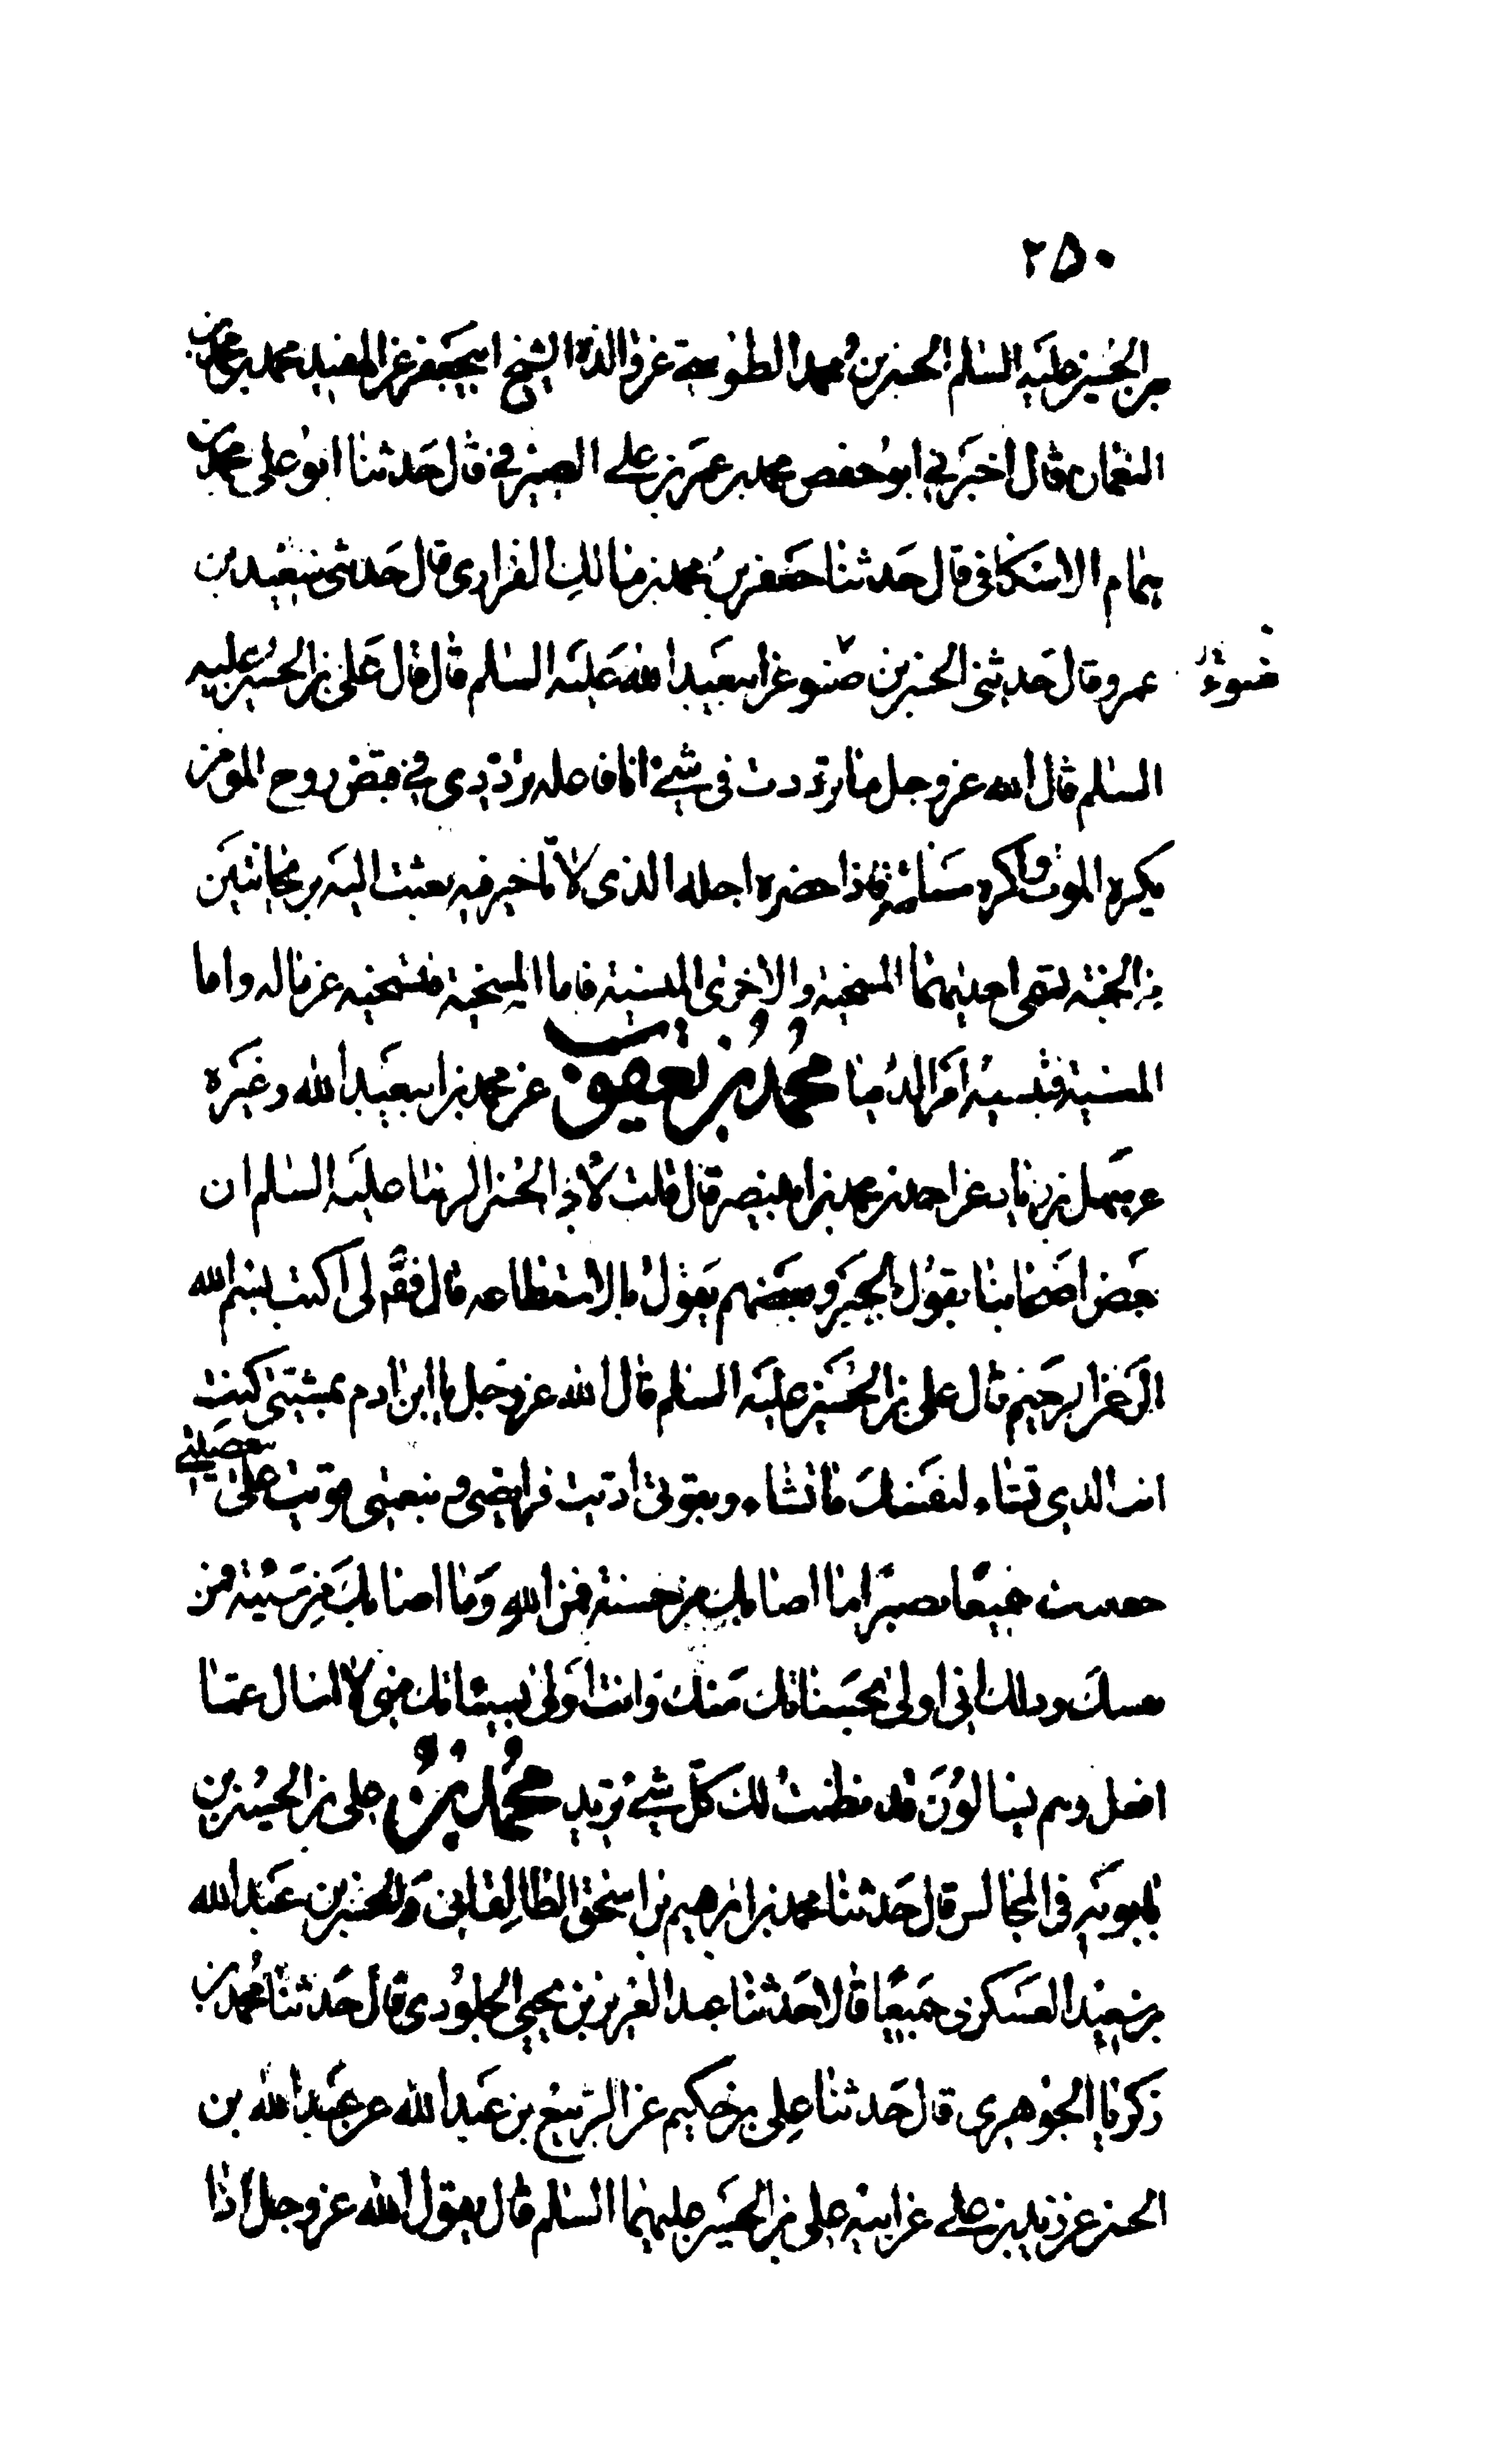 ٢٥٠
بن الحسين عليه السلم الحسن بن محمد الطوسي عن والده الشيخ ابيجعفر عن المفيد محمد بن محمد بن
النعمان قال اخبرني ابو حفص محمد بن عمر بن علي الصيرفي قال حدثنا ابو علي محمد بن
همام الاسكافي قال حدثنا جعفر بن محمد بن مالك الفزاري قال حدثني سعيد بن
عمرو قال حدثني الحسن بن ضنو عن ابيعبد الله عليه السلم قال قال علي بن الحسين عليه
ضوء
السلم قال الله عز وجل ما ترددت في شئ انا فاعله ترددي في قبض روح المومن
يكره الموت واكره مسائته فاذا حضره اجله الذي لا تاخير فيه بعثت اليه بريحانتين
من الجنة تسمى احديهما المسخية والاخرى المنسية فاما المسخية فتسخيه عن ماله واما
المنسية فتنسيه امر الدنيا محمد بن يعقوب عن محمد بن ابيعبد الله وغيره
عن سهل بن زياد عن احمد بن محمد بن ابينصر قال قلت لابي الحسن الرضا عليه السلم ان
بعض اصحابنا يقول بالجبر وبعضهم يقول بالاستطاعه قال فقال لي اكتب بسم الله
الرحمن الرحيم قال علي بن الحسين عليه السلم قال الله عز وجل يا ابن ادم بمشيتي كنت
انت الذي تشاء لنفسك ما تشاء وبقوتي اديت فرايضي وبنعمتي قويت على معصيتي
جعلتك سميعا بصيرا ما اصابك من حسنة فمن الله وما اصابك من سيئة فمن
نفسك وذلك اني اولى بحسناتك منك وانت اولى بسيئاتك مني لا اسال عما
افعل وهم يسالون قد نظمت لك كل شئ تريد محمد بن علي بن الحسين بن
بابويه في المجالس قال حدثنا محمد بن ابرهيم بن اسحق الطالقاني والحسن بن عبد الله
بن سعيد العسكري جميعا قالا حدثنا عبد العزيز بن يحيي الجلودي قال حدثنا محمد بن
زكريا الجوهري قال حدثنا علي بن حكيم عن الربيع بن عبد الله عن عبد الله بن
الحسن عن زيد بن علي عن ابيه علي بن الحسين عليهما السلم قال يقول الله عز وجل اذا